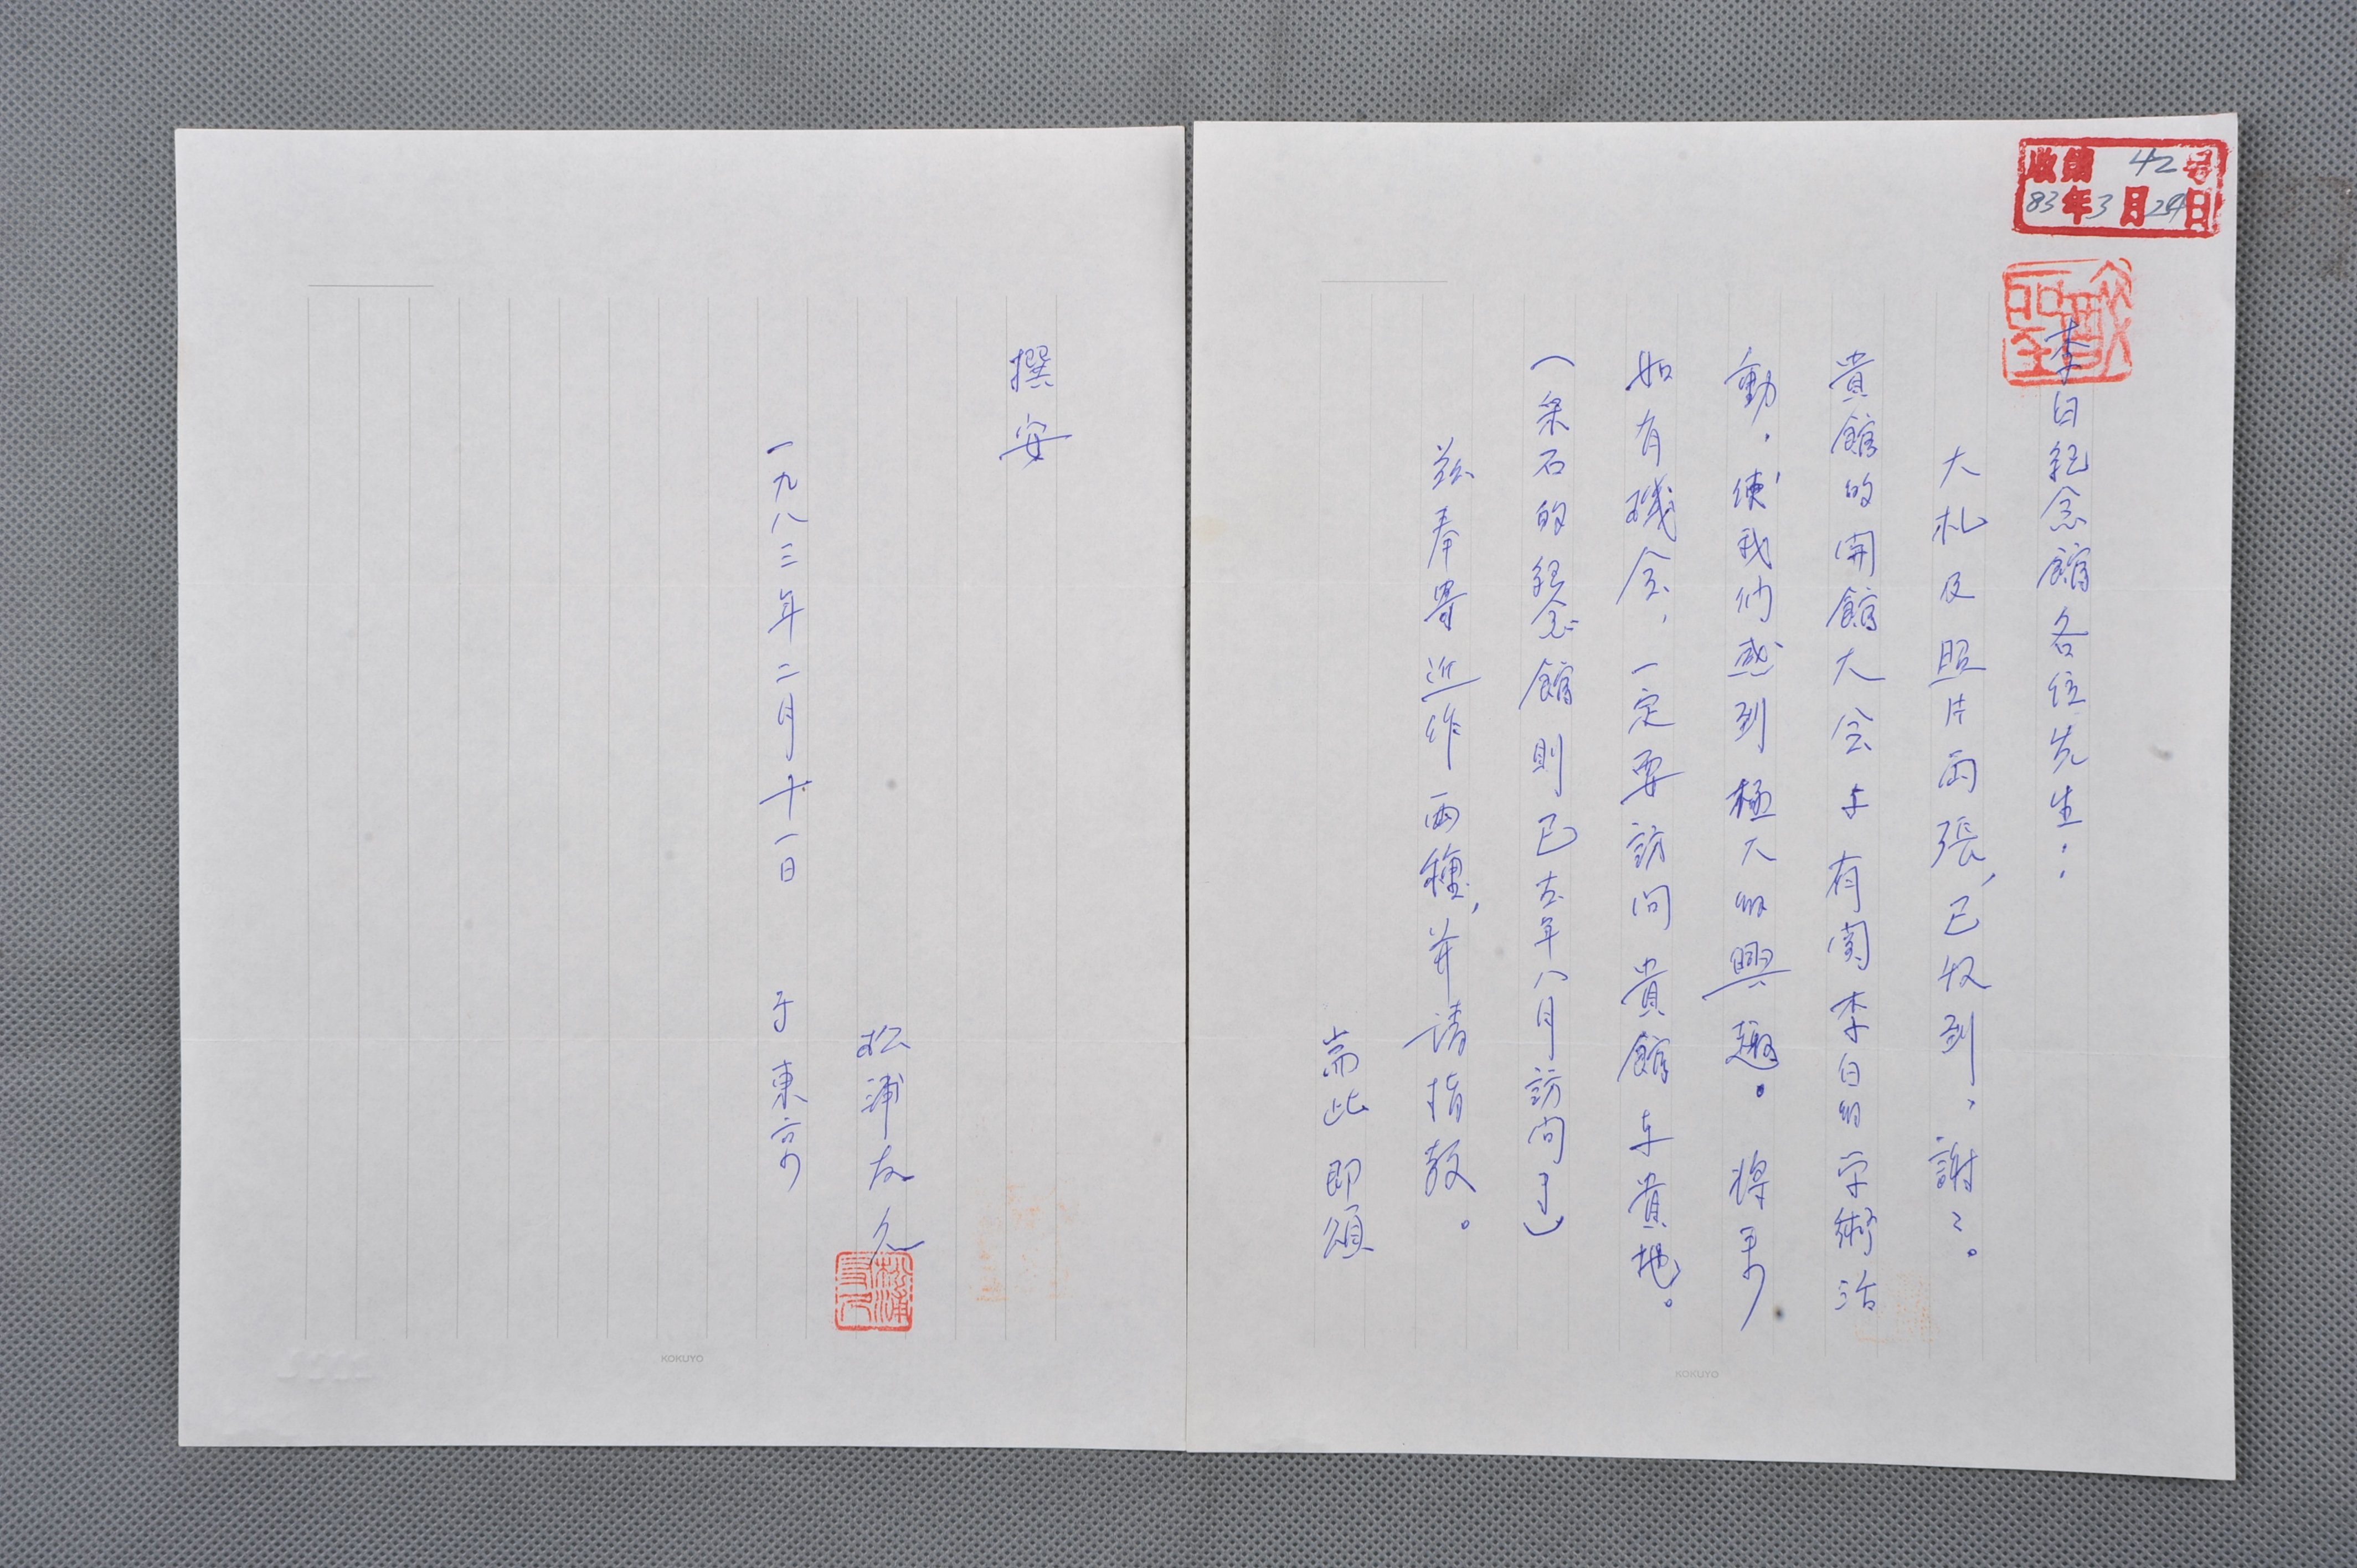 收第 42号
83年3月24日
李白纪念館各位先生：
大札及照片両張，已收到，謝々。
貴館的開館大会与有関李白的学術活
動，使我们感到極大的興趣。将来
如有機会，一定要訪问貴館与貴地。
（采石的纪念館則已去年八月訪问了）
兹奉寄近作両種，并請指教。
耑此即頌
撰安
松浦友久
一九八三年二月十一日 于東京
松浦友久
KOKUYO
KOKUYO